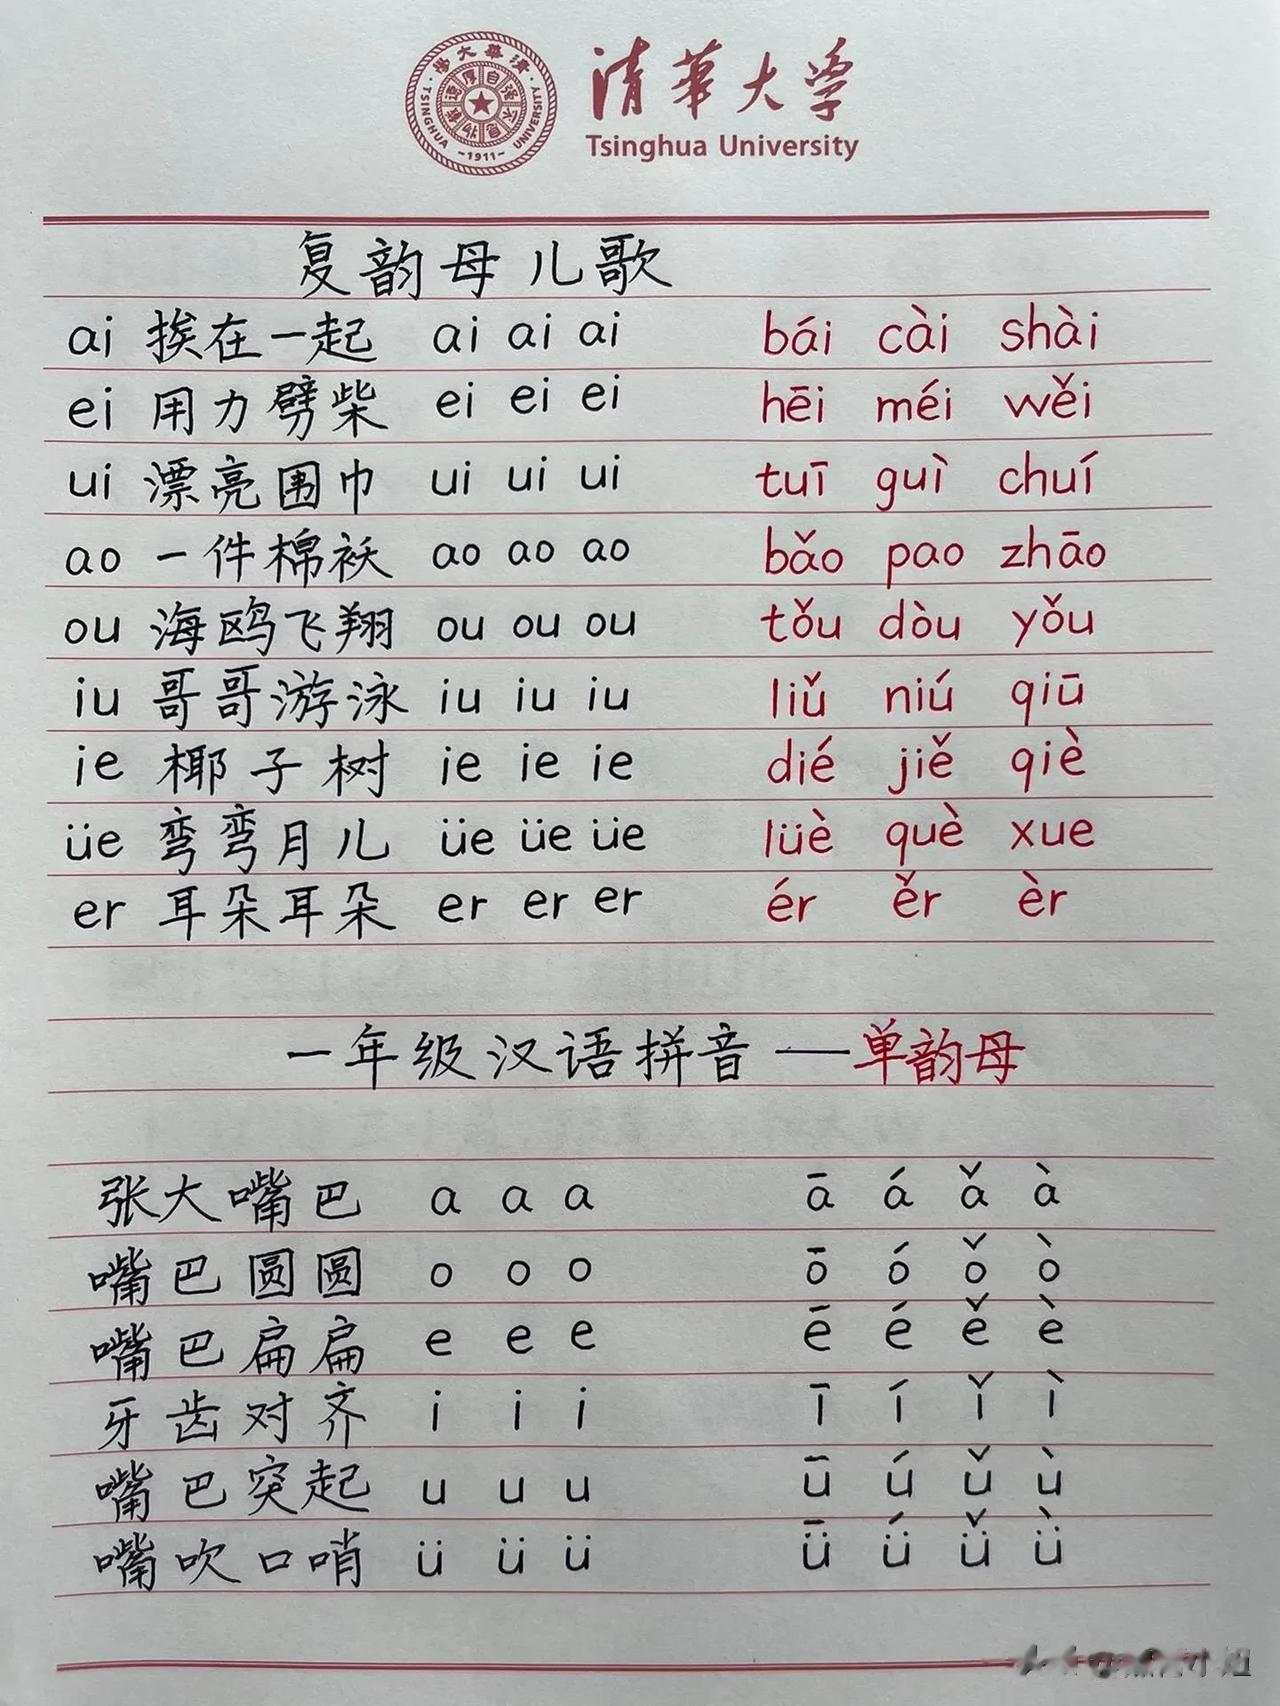 清華大学
Tsinghua University
TSINGHUA UNIVERSITY
-1911-
复韵母儿歌
ai 挨在一起 ai ai ai bái cài shài
ei 用力劈柴 ei ei ei hēi méi wěi
ui 漂亮围巾 ui ui ui tuī guì chuí
ao 一件棉袄 ao ao ao bǎo pao zhāo
ou 海鸥飞翔 ou ou ou tǒu dòu yǒu
iu 哥哥游泳 iu iu iu liǔ niú qiū
ie 椰子树 ie ie ie dié jiě qiè
üe 弯弯月儿 üe üe üe lüè què xue
er 耳朵耳朵 er er er ér ěr èr
一年级汉语拼音 — 单韵母
张大嘴巴 a a a ā á ǎ à
嘴巴圆圆 o o o ō ó ǒ ò
嘴巴扁扁 e e e ē é ě è
牙齿对齐 i i i ī í ǐ ì
嘴巴突起 u u u ū ú ǔ ù
嘴吹口哨 ü ü ü ǖ ǘ ǚ ǜ